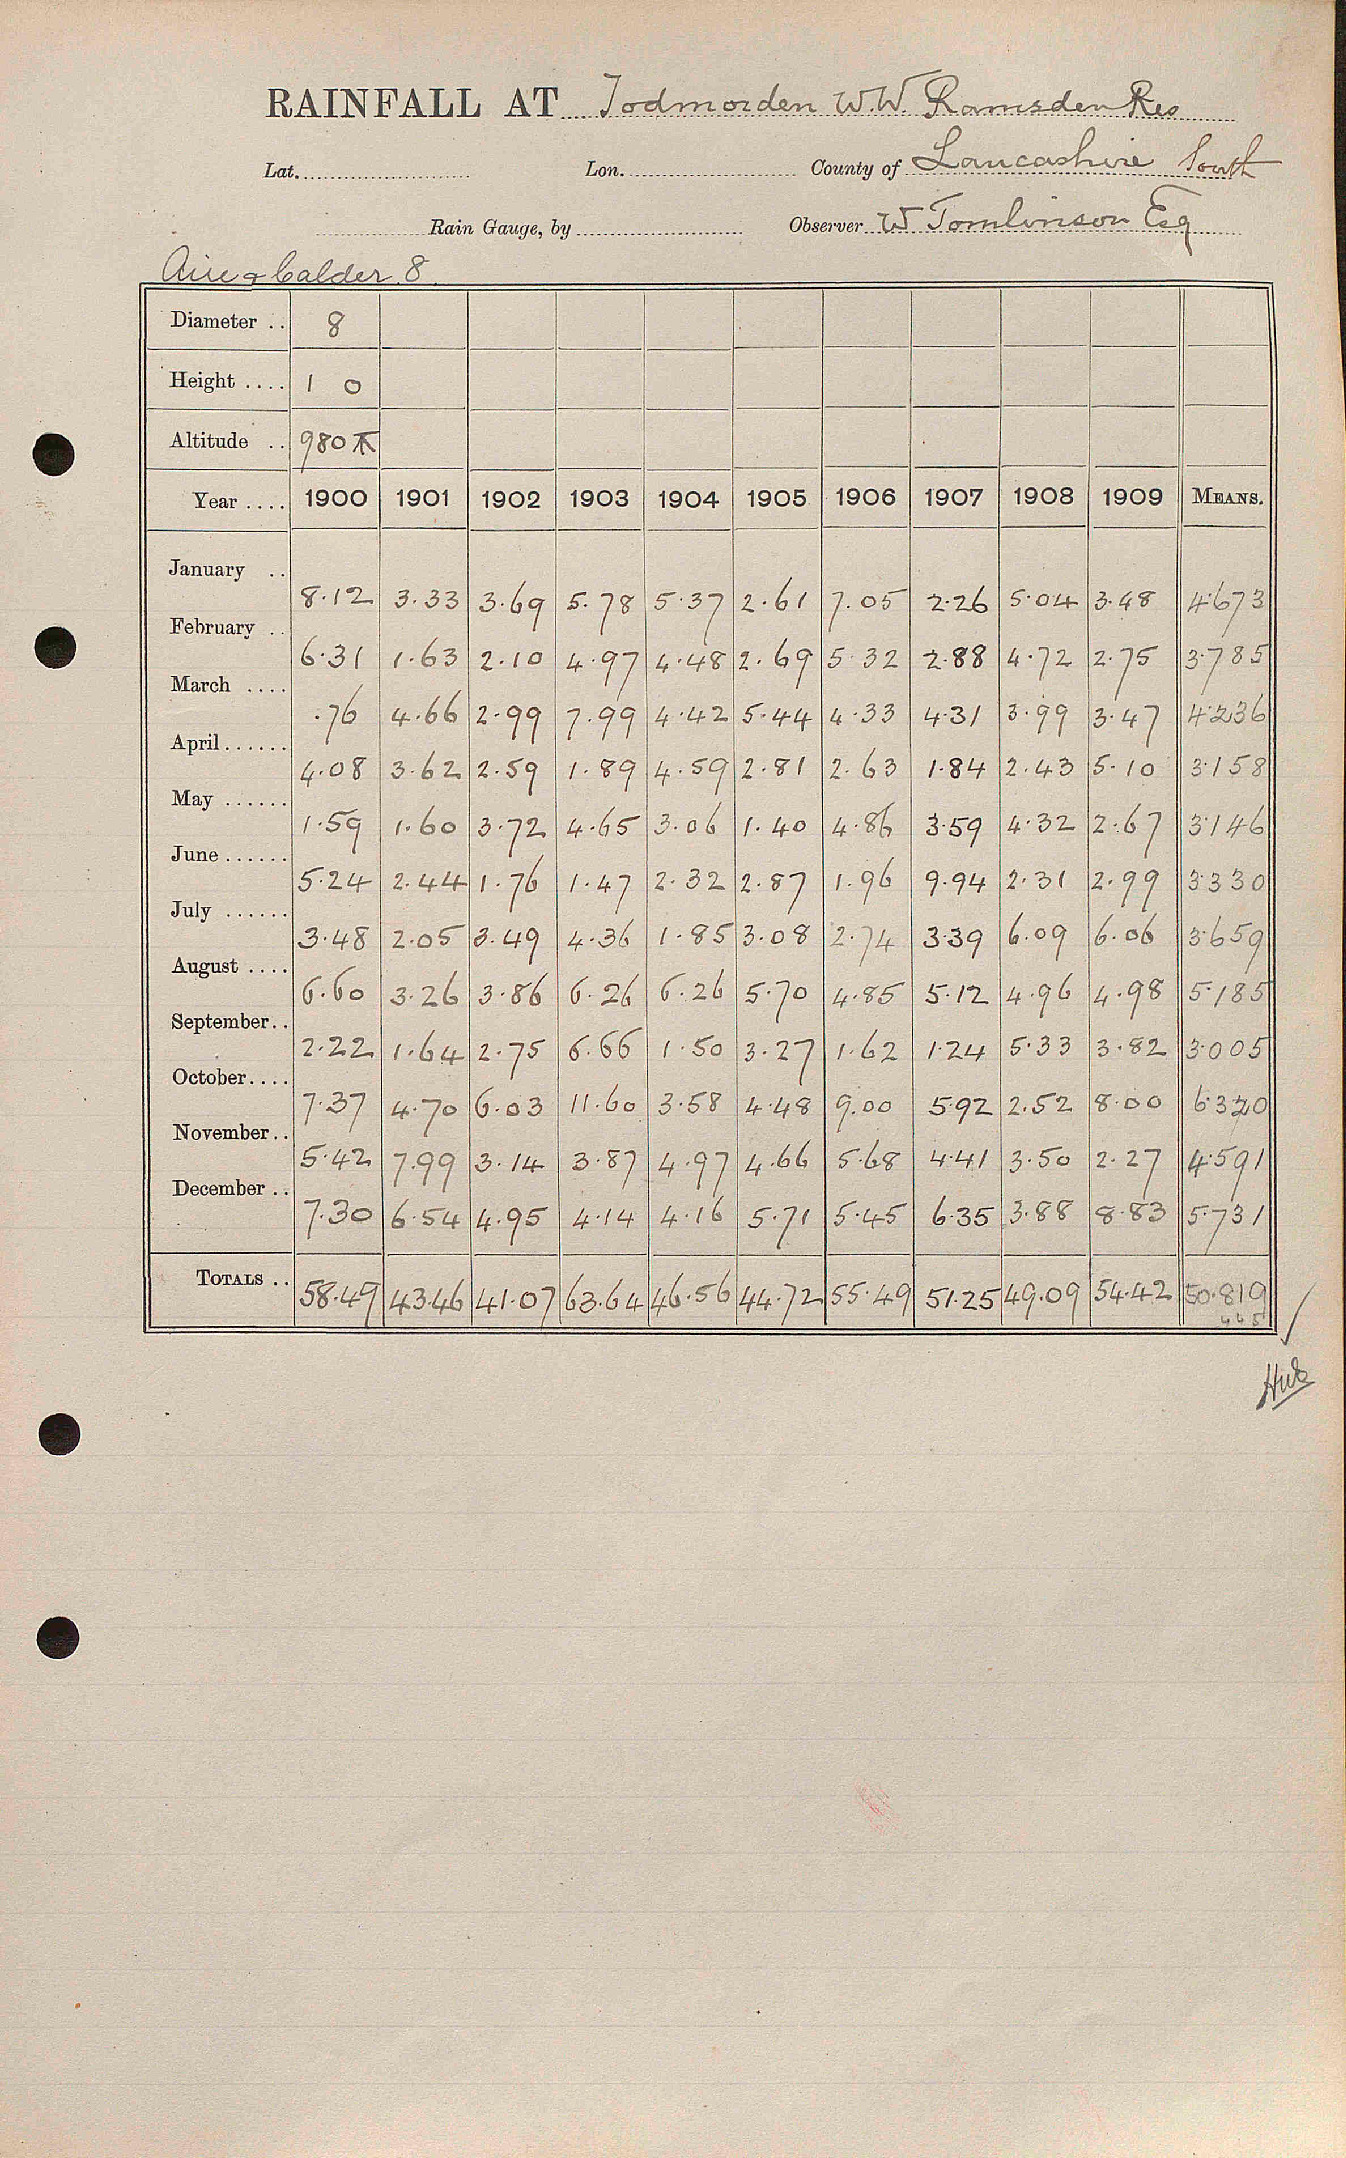 RAINFALL AT Todmorden W.W. Ramsden Res
Lat. Lon. County of Lancashire South
Rain Gauge, by Observer W Tomlinson Esq
Aire & Calder. 8.
Diameter .. 8
Height .... 1 0
Altitude .. 980
Year .... 1900 1901 1902 1903 1904 1905 1906 1907 1908 1909 MEANS.
January .. 8.12 3.33 3.69 5.78 5.37 2.61 7.05 2.26 5.04 3.48 4.673
February .. 6.31 1.63 2.10 4.97 4.48 2.69 5.32 2.88 4.72 2.75 3.785
March .... .76 4.66 2.99 7.99 4.42 5.44 4.33 4.31 3.99 3.47 4.236
April...... 4.08 3.62 2.59 1.89 4.59 2.81 2.63 1.84 2.43 5.10 3.158
May ...... 1.59 1.60 3.72 4.65 3.06 1.40 4.86 3.59 4.32 2.67 3.146
June...... 5.24 2.44 1.76 1.47 2.32 2.87 1.96 9.94 2.31 2.99 3.330
July ...... 3.48 2.05 3.49 4.36 1.85 3.08 2.74 3.39 6.09 6.06 3.659
August .... 6.60 3.26 3.86 6.26 6.26 5.70 4.85 5.12 4.96 4.98 5.185
September.. 2.22 1.64 2.75 6.66 1.50 3.27 1.62 1.24 5.33 3.82 3.005
October.... 7.37 4.70 6.03 11.60 3.58 4.48 9.00 5.92 2.52 8.00 6.320
November.. 5.42 7.99 3.14 3.87 4.97 4.66 5.68 4.41 3.50 2.27 4.591
December .. 7.30 6.54 4.95 4.14 4.16 5.71 5.45 6.35 3.88 8.83 5.731
TOTALS .. 58.49 43.46 41.07 63.64 46.56 44.72 55.49 51.25 49.09 54.42 50.819